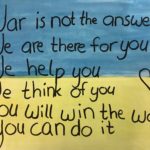 War is not the answer
We are there for you
We help you
We think of you
You will win the wa
you can do it